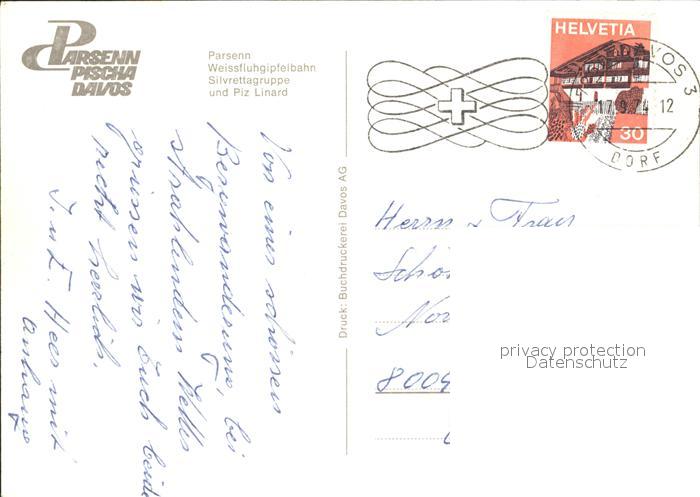 PARSENN
PISCHA
DAVOS
Parsenn
Weissfluhgipfelbahn
Silvrettagruppe
und Piz Linard
Von einer schönen
Bergwanderung, bei
strahlendem
grüssen wir Euch beide
recht herzlich.
Hees mit
Anhang
Druck: Buchdruckerei Davos AG
HELVETIA
30
DAVOS 3
17.9.74 12
DORF
Herrn u Frau
8004
privacy protection
Datenschutz